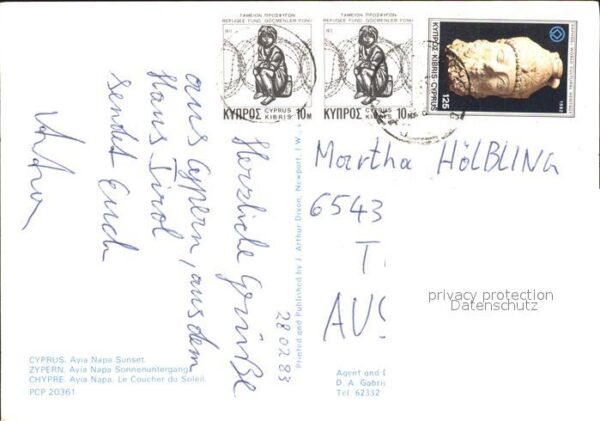 ΤΑΜΕΙΟΝ ΠΡΟΣΦΥΓΩΝ
REFUGEE FUND GÖÇMENLER FONU
1977
ΚΥΠΡΟΣ CYPRUS KIBRIS 10M
ΤΑΜΕΙΟΝ ΠΡΟΣΦΥΓΩΝ
REFUGEE FUND GÖÇMENLER FONU
1977
ΚΥΠΡΟΣ CYPRUS KIBRIS 10M
ΚΥΠΡΟΣ KIBRIS CYPRUS
125
1982
Herzliche Grüße
aus Cypern, aus dem
Haus Tirol
sendet Euch
28 02 83
Martha HÖLBLING
6543
T
AUS
privacy protection
Datenschutz
Printed and Published by J. Arthur Dixon, Newport, I.W.,
CYPRUS. Ayia Napa Sunset.
ZYPERN. Ayia Napa Sonnenuntergang
CHYPRE. Ayia Napa. Le Coucher du Soleil.
PCP 20361
Agent and
D. A. Gabri
Tel. 62332